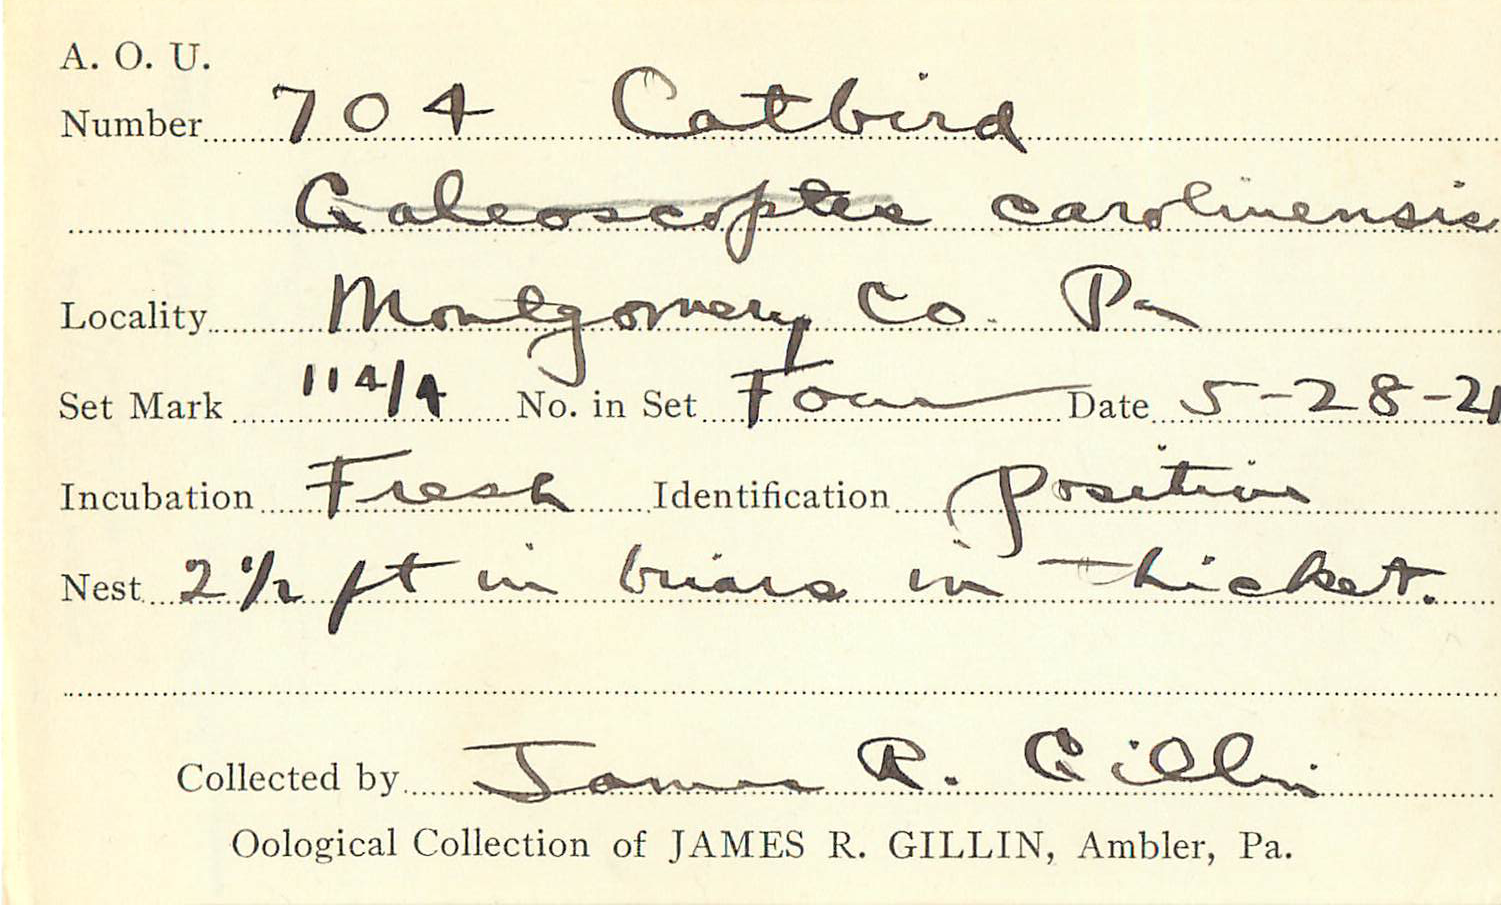 A. O. U.
Number 704 Catbird
Galeoscoptes carolinensis
Locality Montgomery Co. Pa
Set Mark 114/4 No. in Set Four Date 5-28-21
Incubation Fresh Identification positive
Nest 2 1/2 ft in briars in thicket.
Collected by James R. Gillin
Oological Collection of JAMES R. GILLIN, Ambler, Pa.